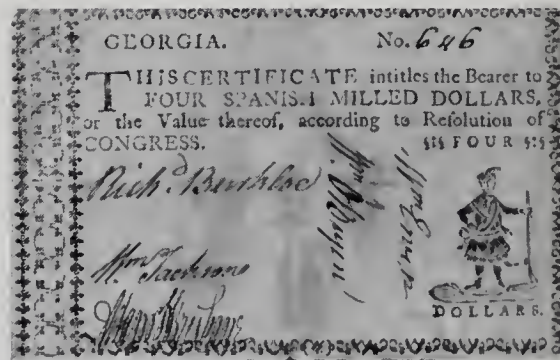 GEORGIA. No. 646
THIS CERTIFICATE intitles the Bearer to
FOUR SPANISH MILLED DOLLARS,
or the Value thereof, according to Resolution of
CONGRESS.
§‡§ FOUR §‡§
Richd
Wm Jackson
Wm
DOLLARS.